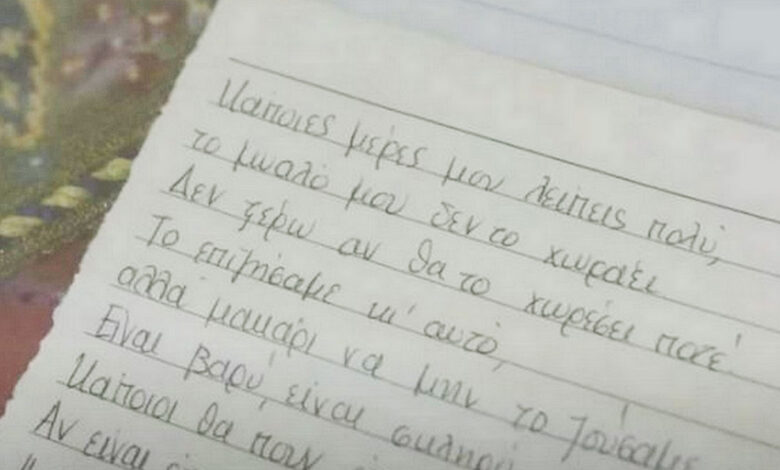 Κάποιες μέρες μου λείπεις πολύ,
το μυαλό μου δεν το χωράει
Δεν ξέρω αν θα το χωρέσει ποτέ.
Το επιζήσαμε κι' αυτό,
αλλά μακάρι να μην το ζούσαμε
Είναι βαρύ, είναι σκληρό
Κάποιοι θα πουν
Αν είναι